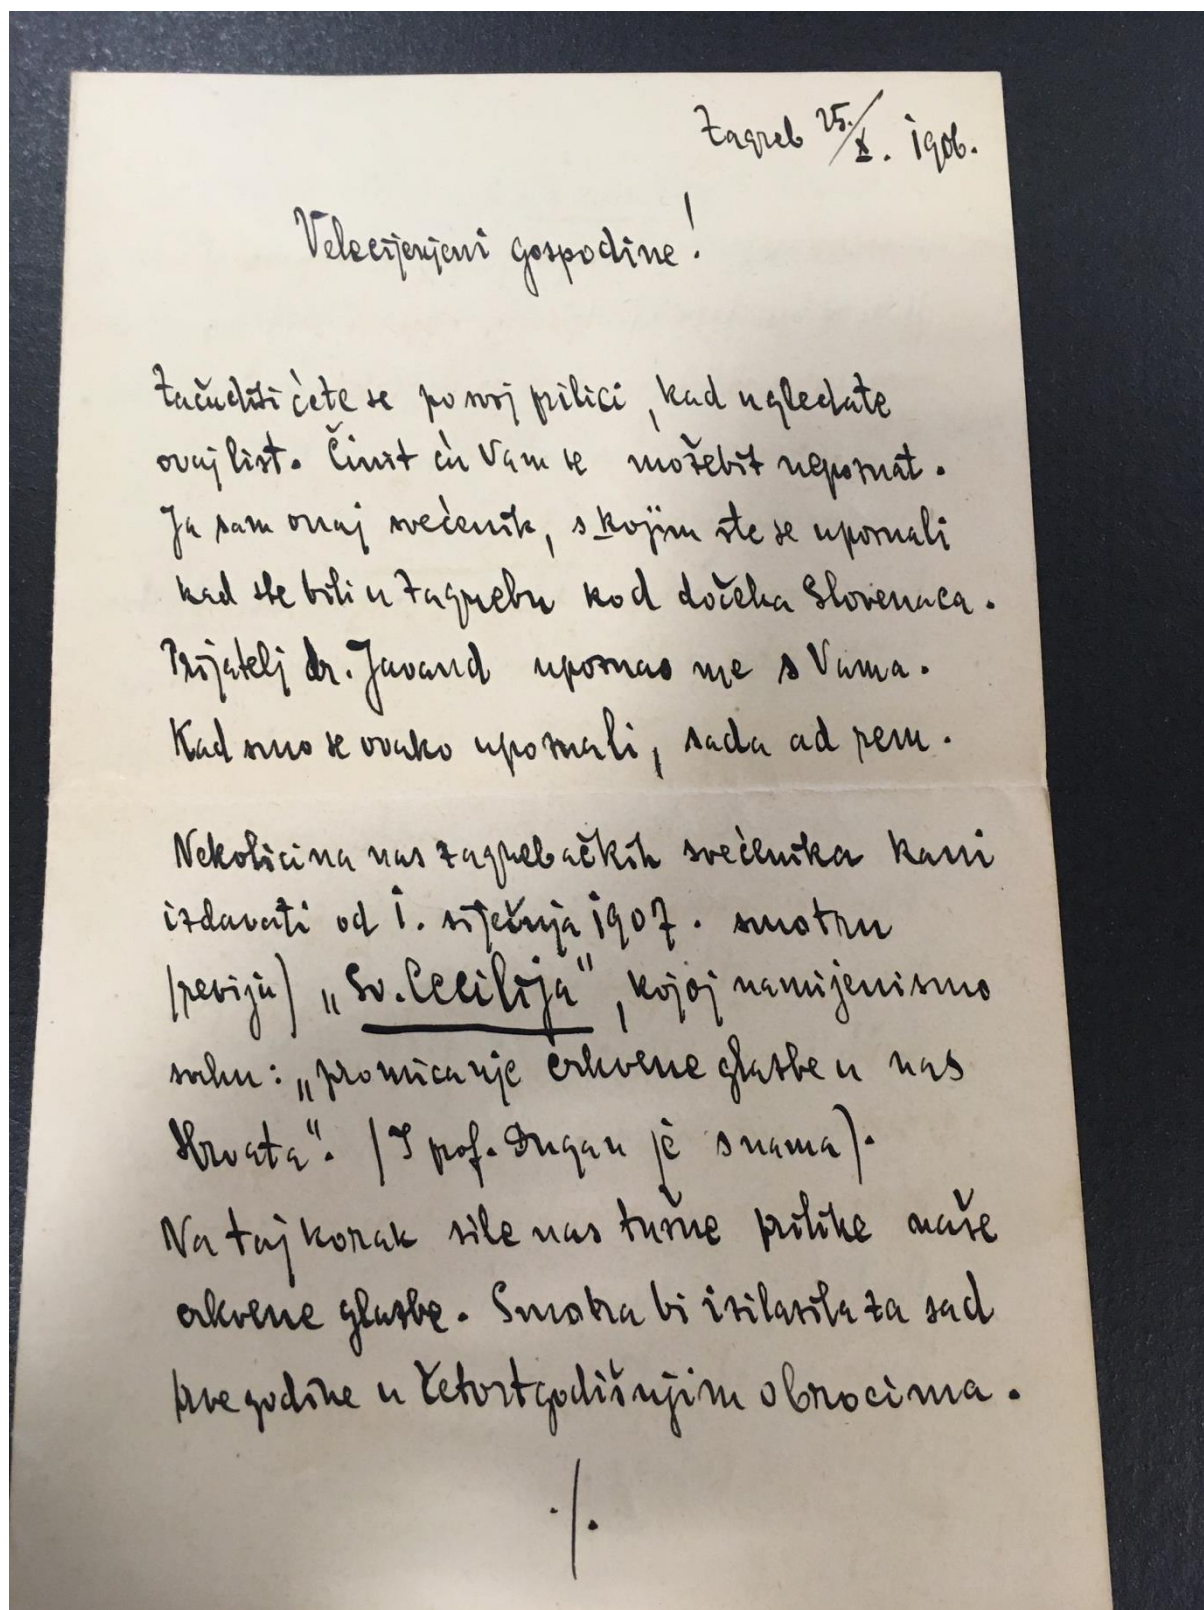 Zagreb 25./X. 1906.
Velecijenjeni gospodine!
Začuditi ćete se po svoj prilici, kad ugledate
ovaj list. Činit ću Vam se možebit nepoznat.
Ja sam onaj svećenik, s kojim ste se upoznali
kad ste bili u Zagrebu kod dočeka Slovenaca.
Prijatelj dr. Javand upoznao me s Vama.
Kad smo se ovako upoznali, sada ad rem.
Nekolicina nas zagrebačkih svećenika kani
izdavati od 1. siječnja 1907. smotru
(reviju) „Sv. Cecilija", kojoj namijenismo
svrhu: „promicanje crkvene glasbe u nas
Hrvata". (I prof. Dugan je s nama).
Na taj korak sile nas tužne prilike naše
crkvene glasbe. Smotra bi izilazila za sad
prve godine u četvrtgodišnjim obrocima.
./.